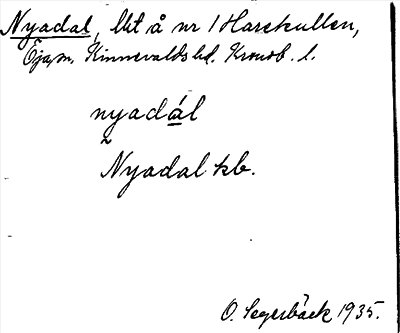 Nyadal, lht å nr 1 Harekullen,
Öja sn. Kinnevalds hd. Kronob. l.
nyadál
Nyadal kb.
O. Segerbäck 1935.